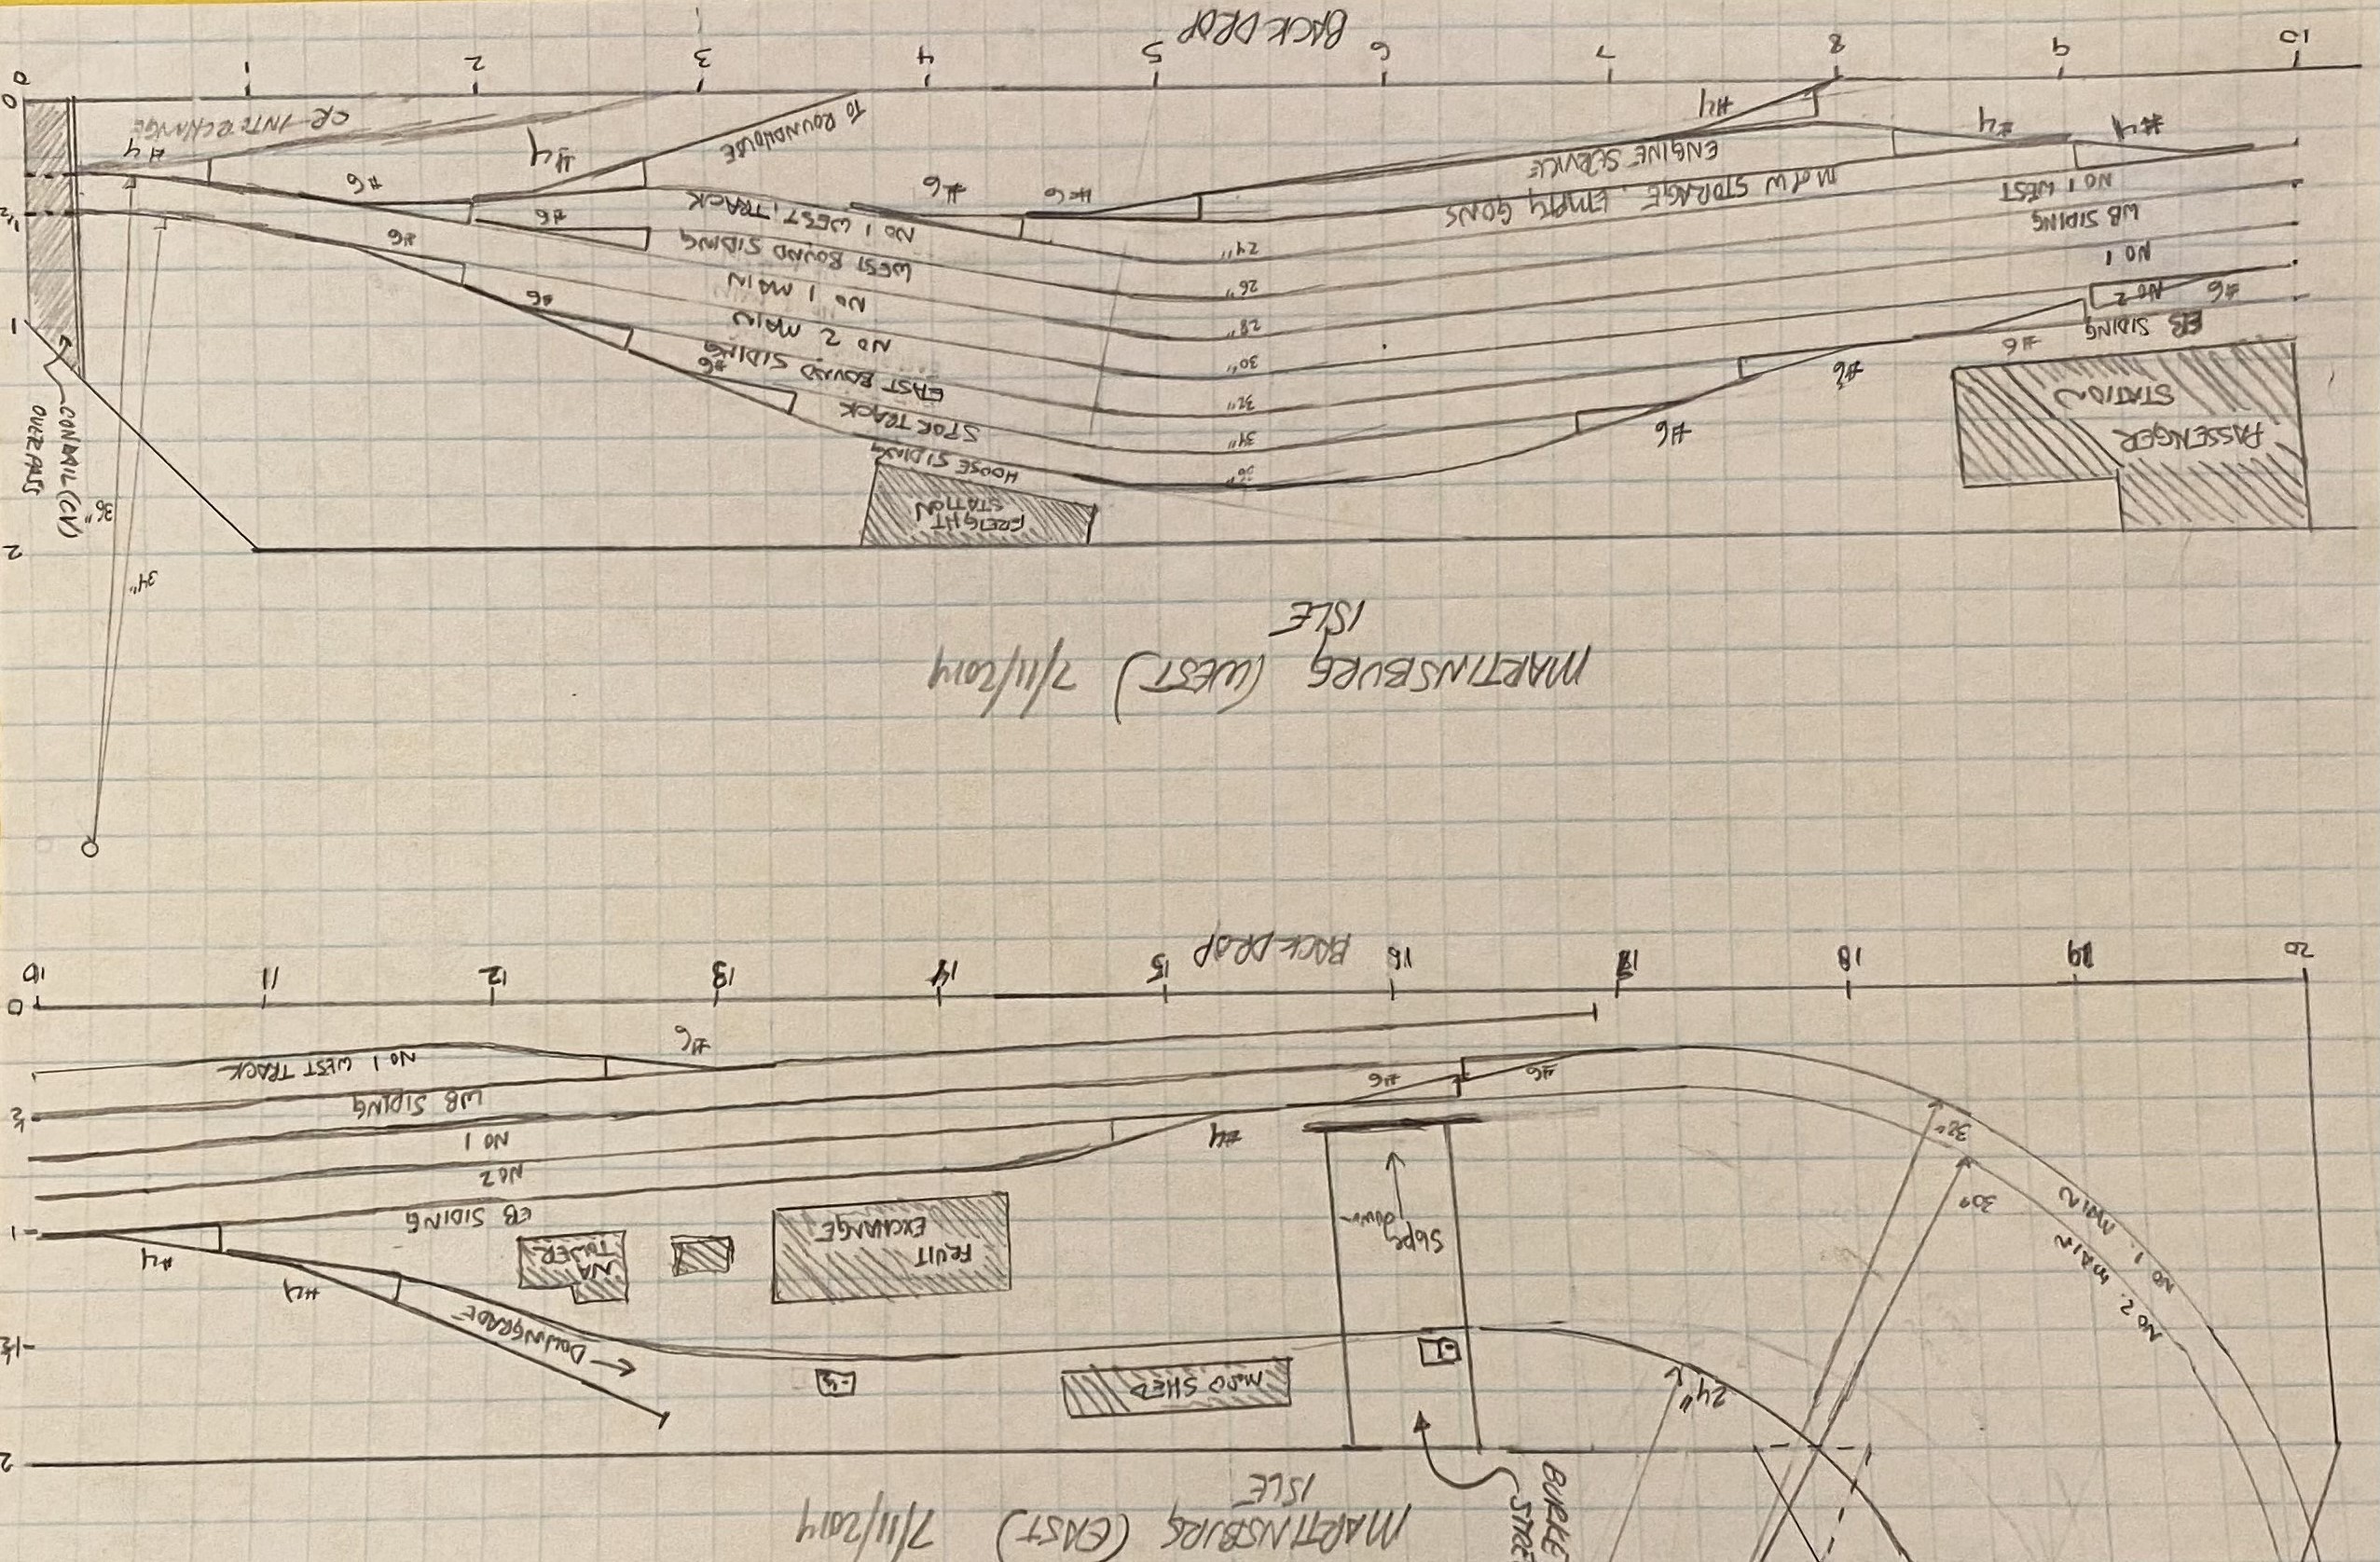 BACKDROP
0
1
2
3
4
5
6
7
8
9
10
0
½
1
2
CR INTERCHANGE
#4
#6
#4
TO ROUNDHOUSE
#6
#6
#6
NO 1 WEST TRACK
WEST BOUND SIDING
NO 1 MAIN
NO 2 MAIN
EAST BOUND SIDING
STOR TRACK
HOUSE SIDING
#6
#6
#6
24"
26"
28"
30"
32"
34"
36"
#4
ENGINE SERVICE
MOW STORAGE, EMPTY GONS
#4
#4
NO 1 WEST
WB SIDING
NO 1
NO 2
#6
EB SIDING
#6
#6
#6
PASSENGER
STATION
FREIGHT
STATION
CONRAIL (CV)
OVERPASS
36"
34"
MARTINSBURG (WEST) 7/11/2014
ISLE
BACKDROP
10
11
12
13
14
15
16
17
18
19
20
0
½
1
1½
2
NO 1 WEST TRACK
#6
WB SIDING
NO 1
NO 2
EB SIDING
#6
#6
#4
#4
#4
WA
TOWER
FRUIT
EXCHANGE
DOWNGRADE
M&O SHED
Slopes
down
32"
30"
24"
NO 1. MAIN
NO 2. MAIN
BURKE
MARTINSBURG (EAST) 7/11/2014
ISLE